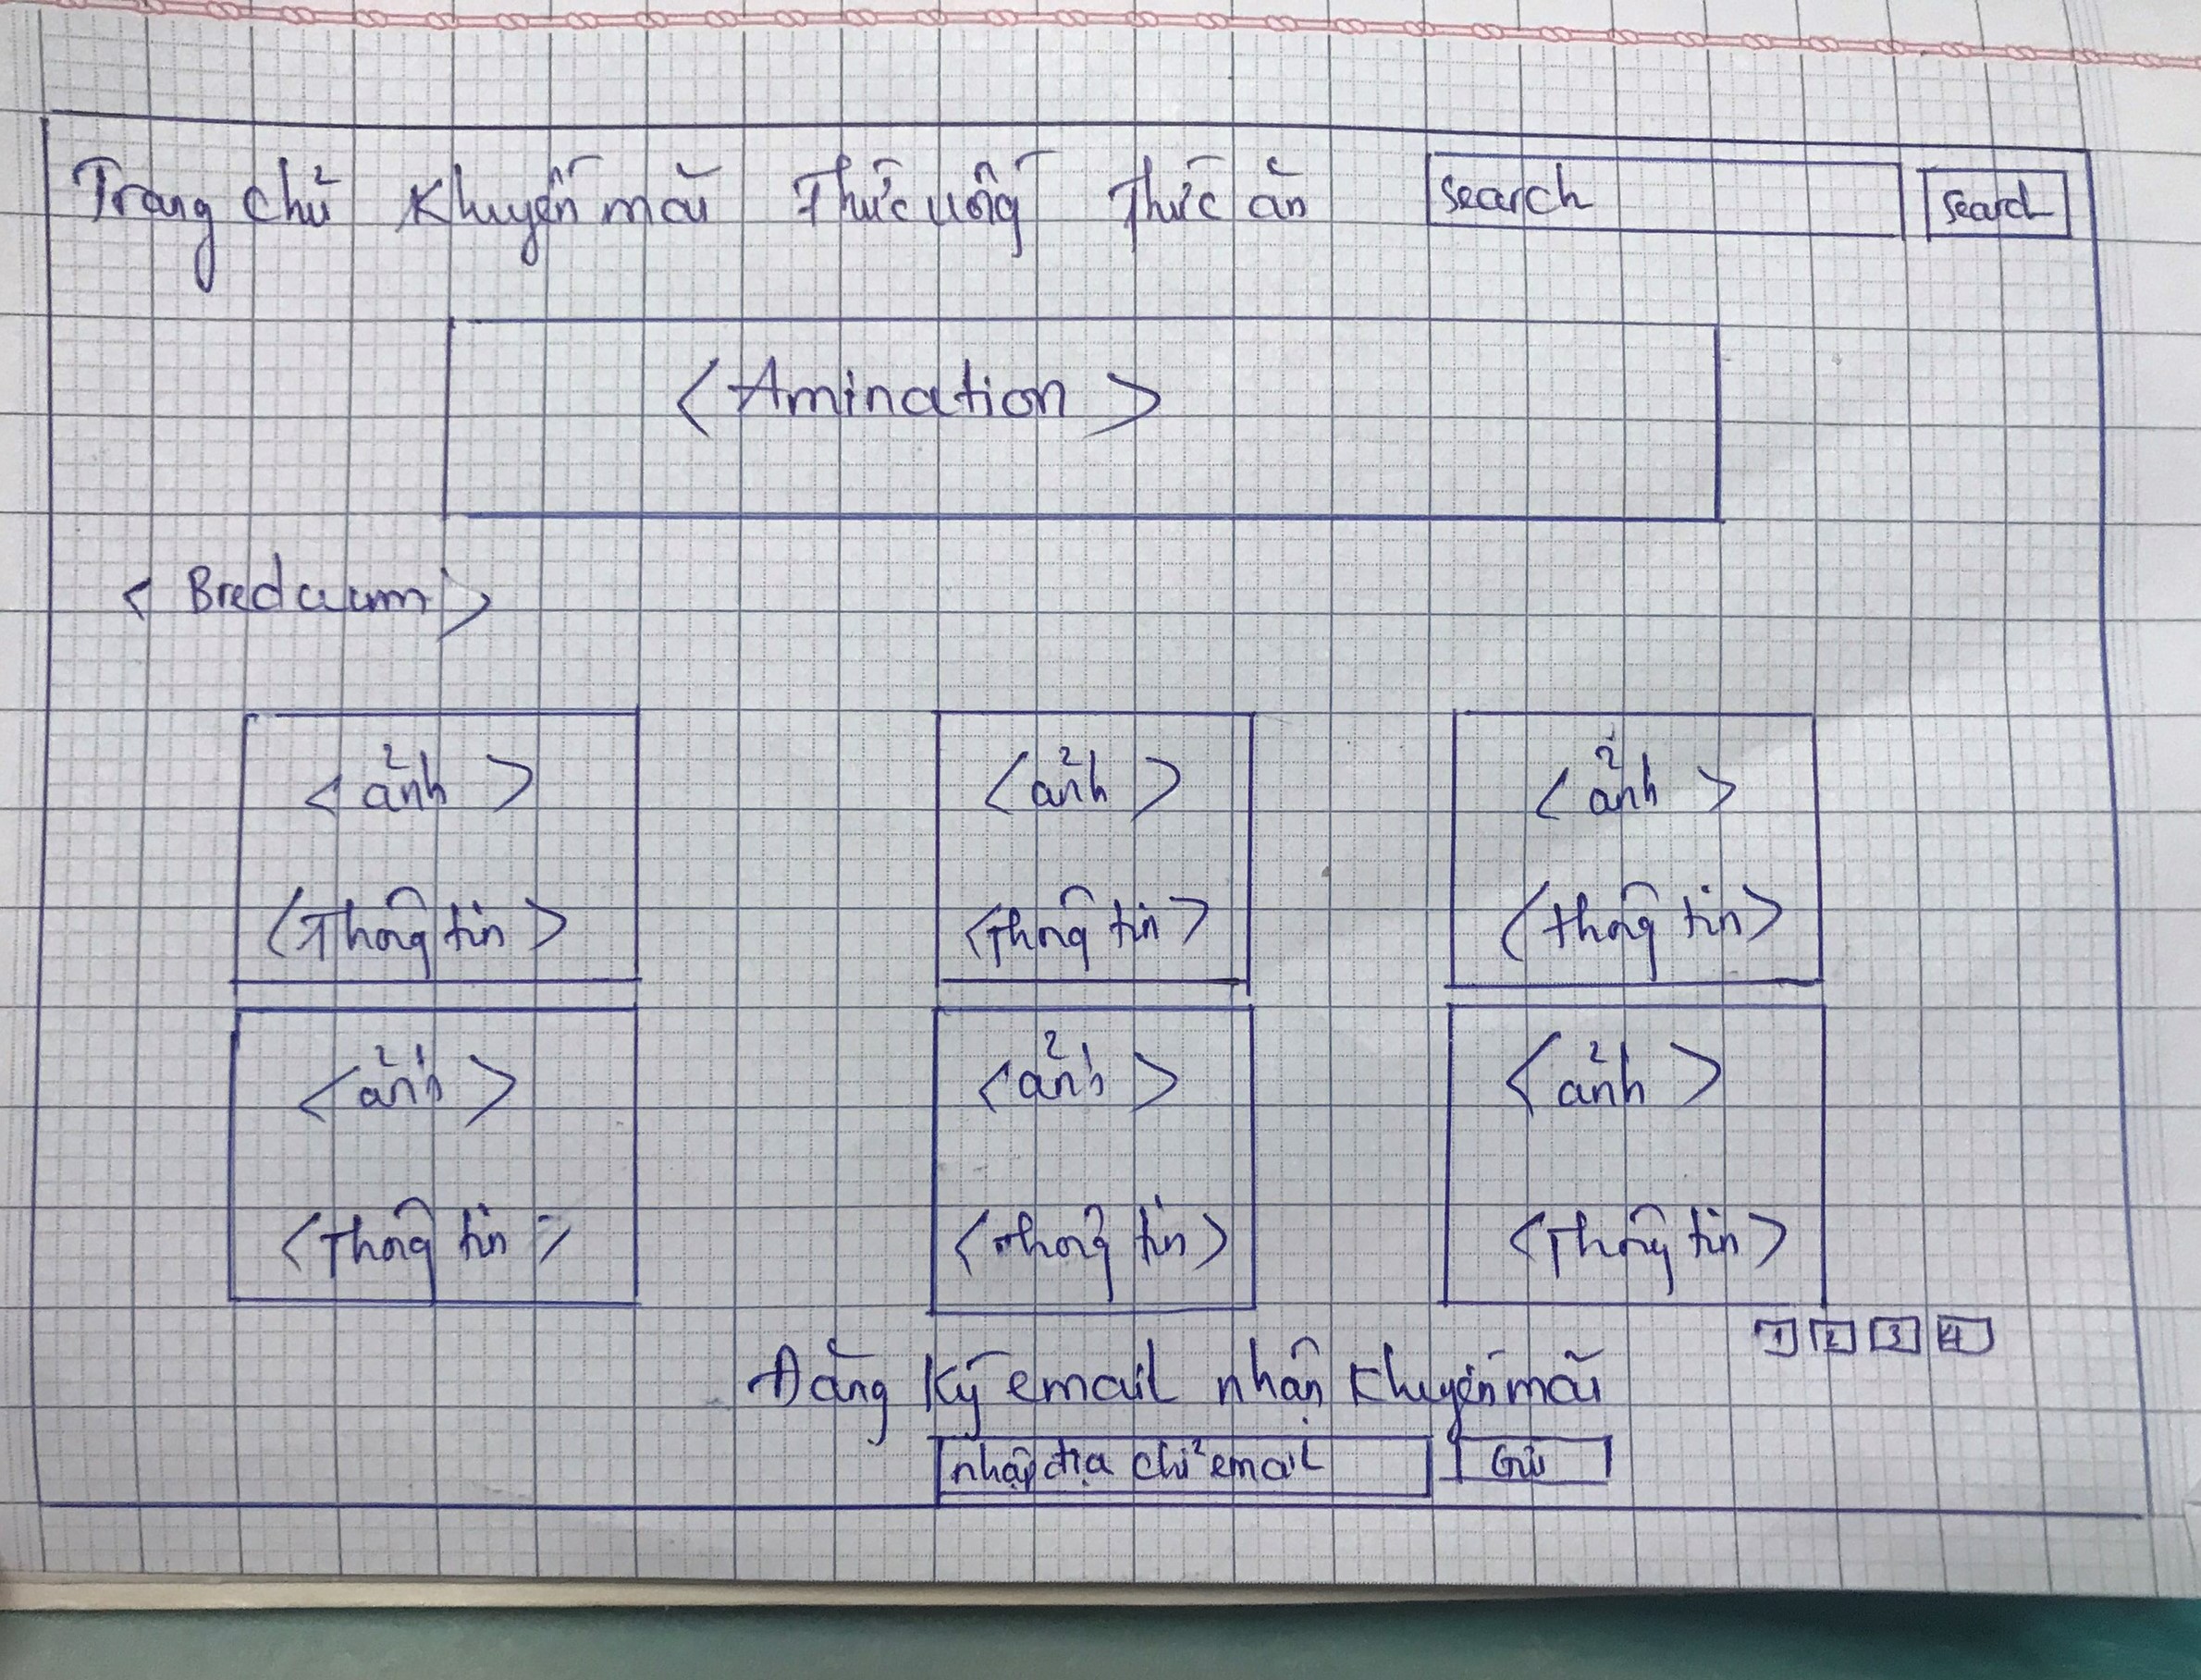 Trang chủ Khuyến mãi Thức uống Thức ăn search search
<Amination>
<Bredcum>
<ảnh> <ảnh> <ảnh>
<Thông tin> <Thông tin> <thông tin>
<ảnh> <ảnh> <ảnh>
<Thông tin> <thông tin> <Thông tin>
1 2 3 4
Đăng ký email nhận khuyến mãi
nhập địa chỉ email Gửi